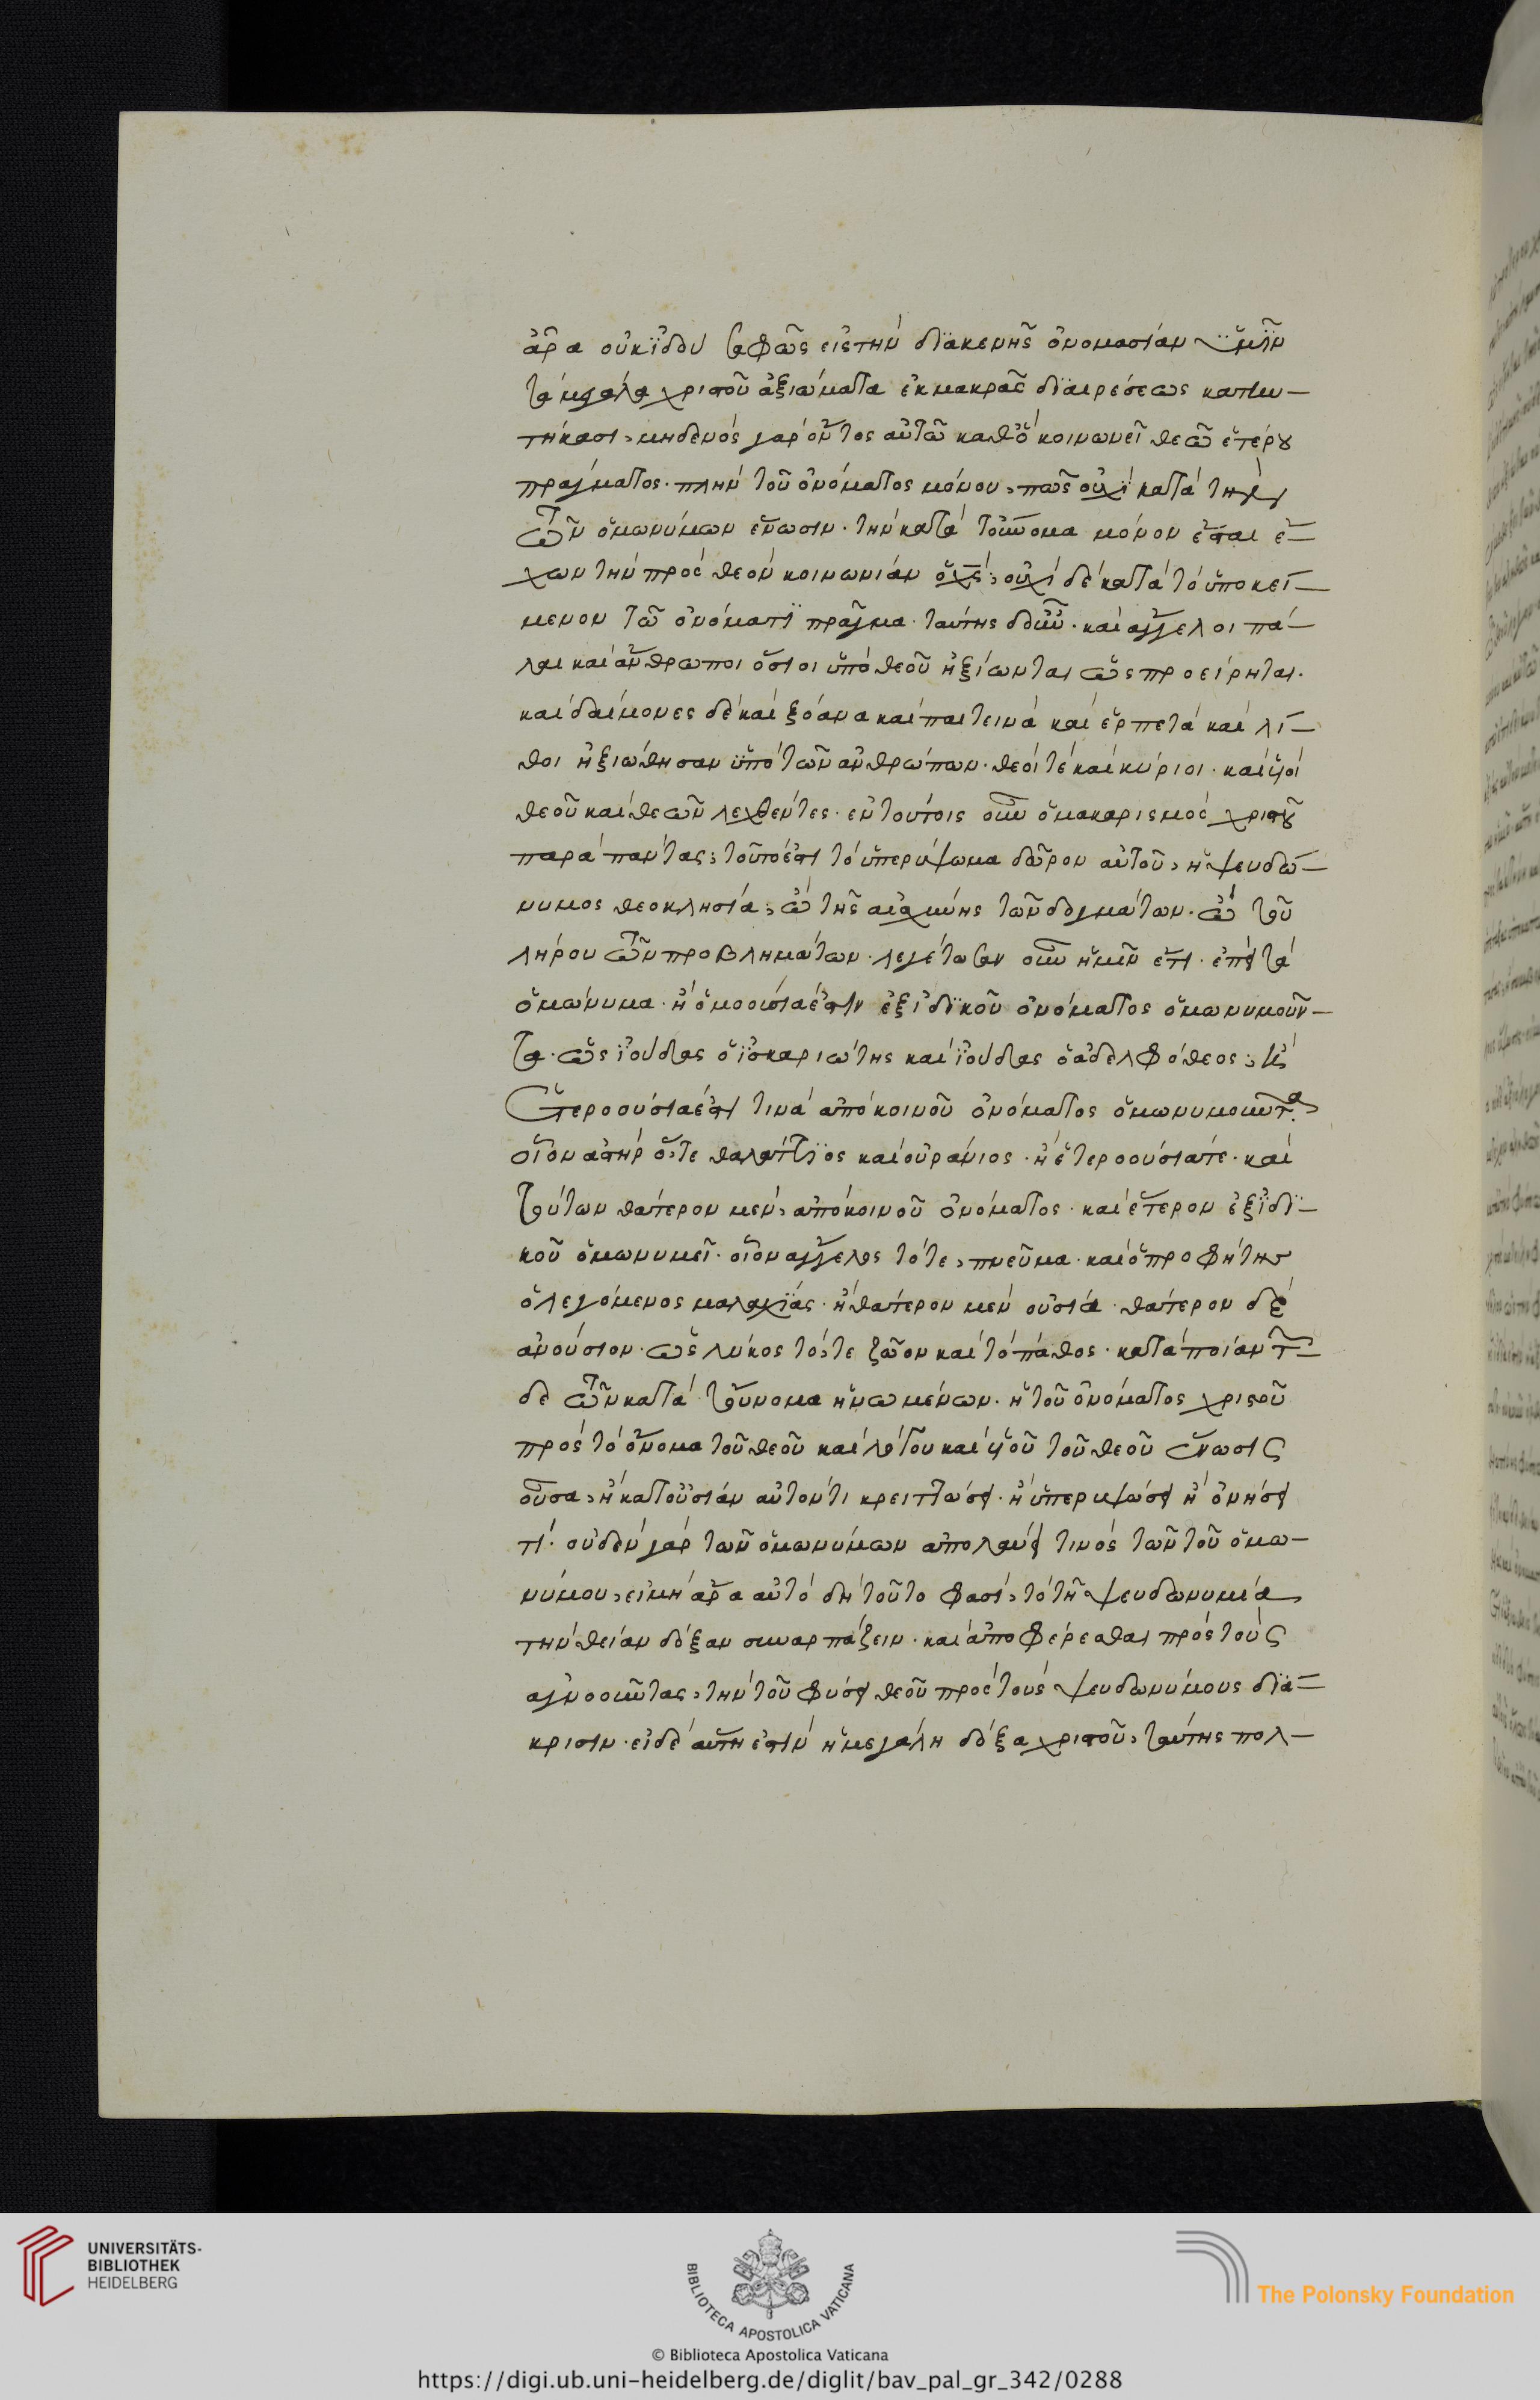 ἆρα οὐκ ἰδοὺ σαφῶς εἰς τὴν διακενῆς ὀνομασίαν ὑμῖν
τὰ μεγάλα χριστοῦ ἀξιώματα ἐκ μακρᾶς διαιρέσεως καπην-
τήκασι, μηδενὸς γὰρ ὄντος αὐτῶ καθ' ὃ κοινωνεῖ θεῶ ἑτέρου
πράγματος· πλὴν τοῦ ὀνόματος μόνου, πῶς οὐχὶ κατὰ τὴν
τῶν ὁμωνύμων ἕνωσιν· τὴν κατὰ τοὔνομα μόνον ἔσται ἔ-
χων τὴν πρὸς θεὸν κοινωνίαν ὁ χς· οὐχὶ δὲ κατὰ τὸ ὑποκεί-
μενον τῶ ὀνόματι πρᾶγμα· ταύτης δ' οὖν· καὶ ἄγγελοι πά-
λαι καὶ ἄνθρωποι ὅσιοι ὑπὸ θεοῦ ἠξίωνται ὡς προείρηται·
καὶ δαίμονες δὲ καὶ ξόανα καὶ παιτεινὰ καὶ ἑρπετὰ καὶ λί-
θοι ἠξιώθησαν ὑπὸ τῶν ἀνθρώπων· θεοί τε καὶ κύριοι· καὶ υἱοὶ
θεοῦ καὶ θεῶν λεχθέντες· ἐν τούτοις οὖν ὁ μακαρισμὸς χριστοῦ
παρὰ πάντας; τοῦτό ἐστι τὸ ὑπερύψωμα δῶρον αὐτοῦ, ἡ ψευδώ-
νυμος θεοκλησία; ὢ τῆς αἰσχύνης τῶν δογμάτων· ὢ τοῦ
λήρου τῶν προβλημάτων· λεγέτωσαν οὖν ἡμῖν ἔτι· ἐπεὶ τὰ
ὁμώνυμα· ἢ ὁμοούσιά ἐστιν ἐξ ἰδικοῦ ὀνόματος ὁμωνυμοῦν-
τα· ὡς ἰούδας ὁ ἰσκαριώτης καὶ ἰούδας ὁ ἀδελφόθεος; ἢ
ἑτεροούσιά ἐστι τινὰ ἀπὸ κοινοῦ ὀνόματος ὁμωνυμοῦντα
οἷον ἀστὴρ ὅ,τε θαλάττιος καὶ οὐράνιος· ἢ ἑτεροούσιά τε· καὶ
τούτων θάτερον μὲν, ἀπὸ κοινοῦ ὀνόματος· καὶ ἕτερον ἐξ ἰδι-
κοῦ ὁμωνυμεῖ· οἷον ἄγγελος τό τε, πνεῦμα· καὶ ὁ προφήτης
ὁ λεγόμενος μαλαχίας· ἢ θάτερον μὲν οὐσία· θάτερον δὲ
ἀνούσιον· ὡς λύκος τό,τε ζῶον καὶ τὸ πάθος· κατὰ ποίαν τ-
δε τῶν κατὰ τοὔνομα ἡνωμένων· ἡ τοῦ ὀνόματος χριστοῦ
πρὸς τὸ ὄνομα τοῦ θεοῦ καὶ λόγου καὶ υἱοῦ τοῦ θεοῦ ἕνωσις
οὖσα, ἢ κατ' οὐσίαν αὐτόν τι κρειττώσει· ἢ ὑπερυψώσει ἢ ὀνήσει
τί· οὐδὲν γὰρ τῶν ὁμωνύμων ἀπολαύει τινὸς τῶν τοῦ ὁμω-
νύμου, εἰ μὴ ἄρα αὐτὸ δὴ τοῦτο φασί, τὸ τῆ ψευδωνυμία
τὴν θείαν δόξαν συναρπάζειν· καὶ ἀποφέρεσθαι πρὸς τοὺς
ἀγνοοῦντας, τὴν τοῦ φύσει θεοῦ πρὸς τοὺς ψευδωνύμους διά-
κρισιν· εἰ δὲ αὕτη ἐστὶν ἡ μεγάλη δόξα χριστοῦ, ταύτης πολ-
UNIVERSITÄTS-
BIBLIOTHEK
HEIDELBERG
BIBLIOTECA APOSTOLICA VATICANA
The Polonsky Foundation
© Biblioteca Apostolica Vaticana
https://digi.ub.uni-heidelberg.de/diglit/bav_pal_gr_342/0288